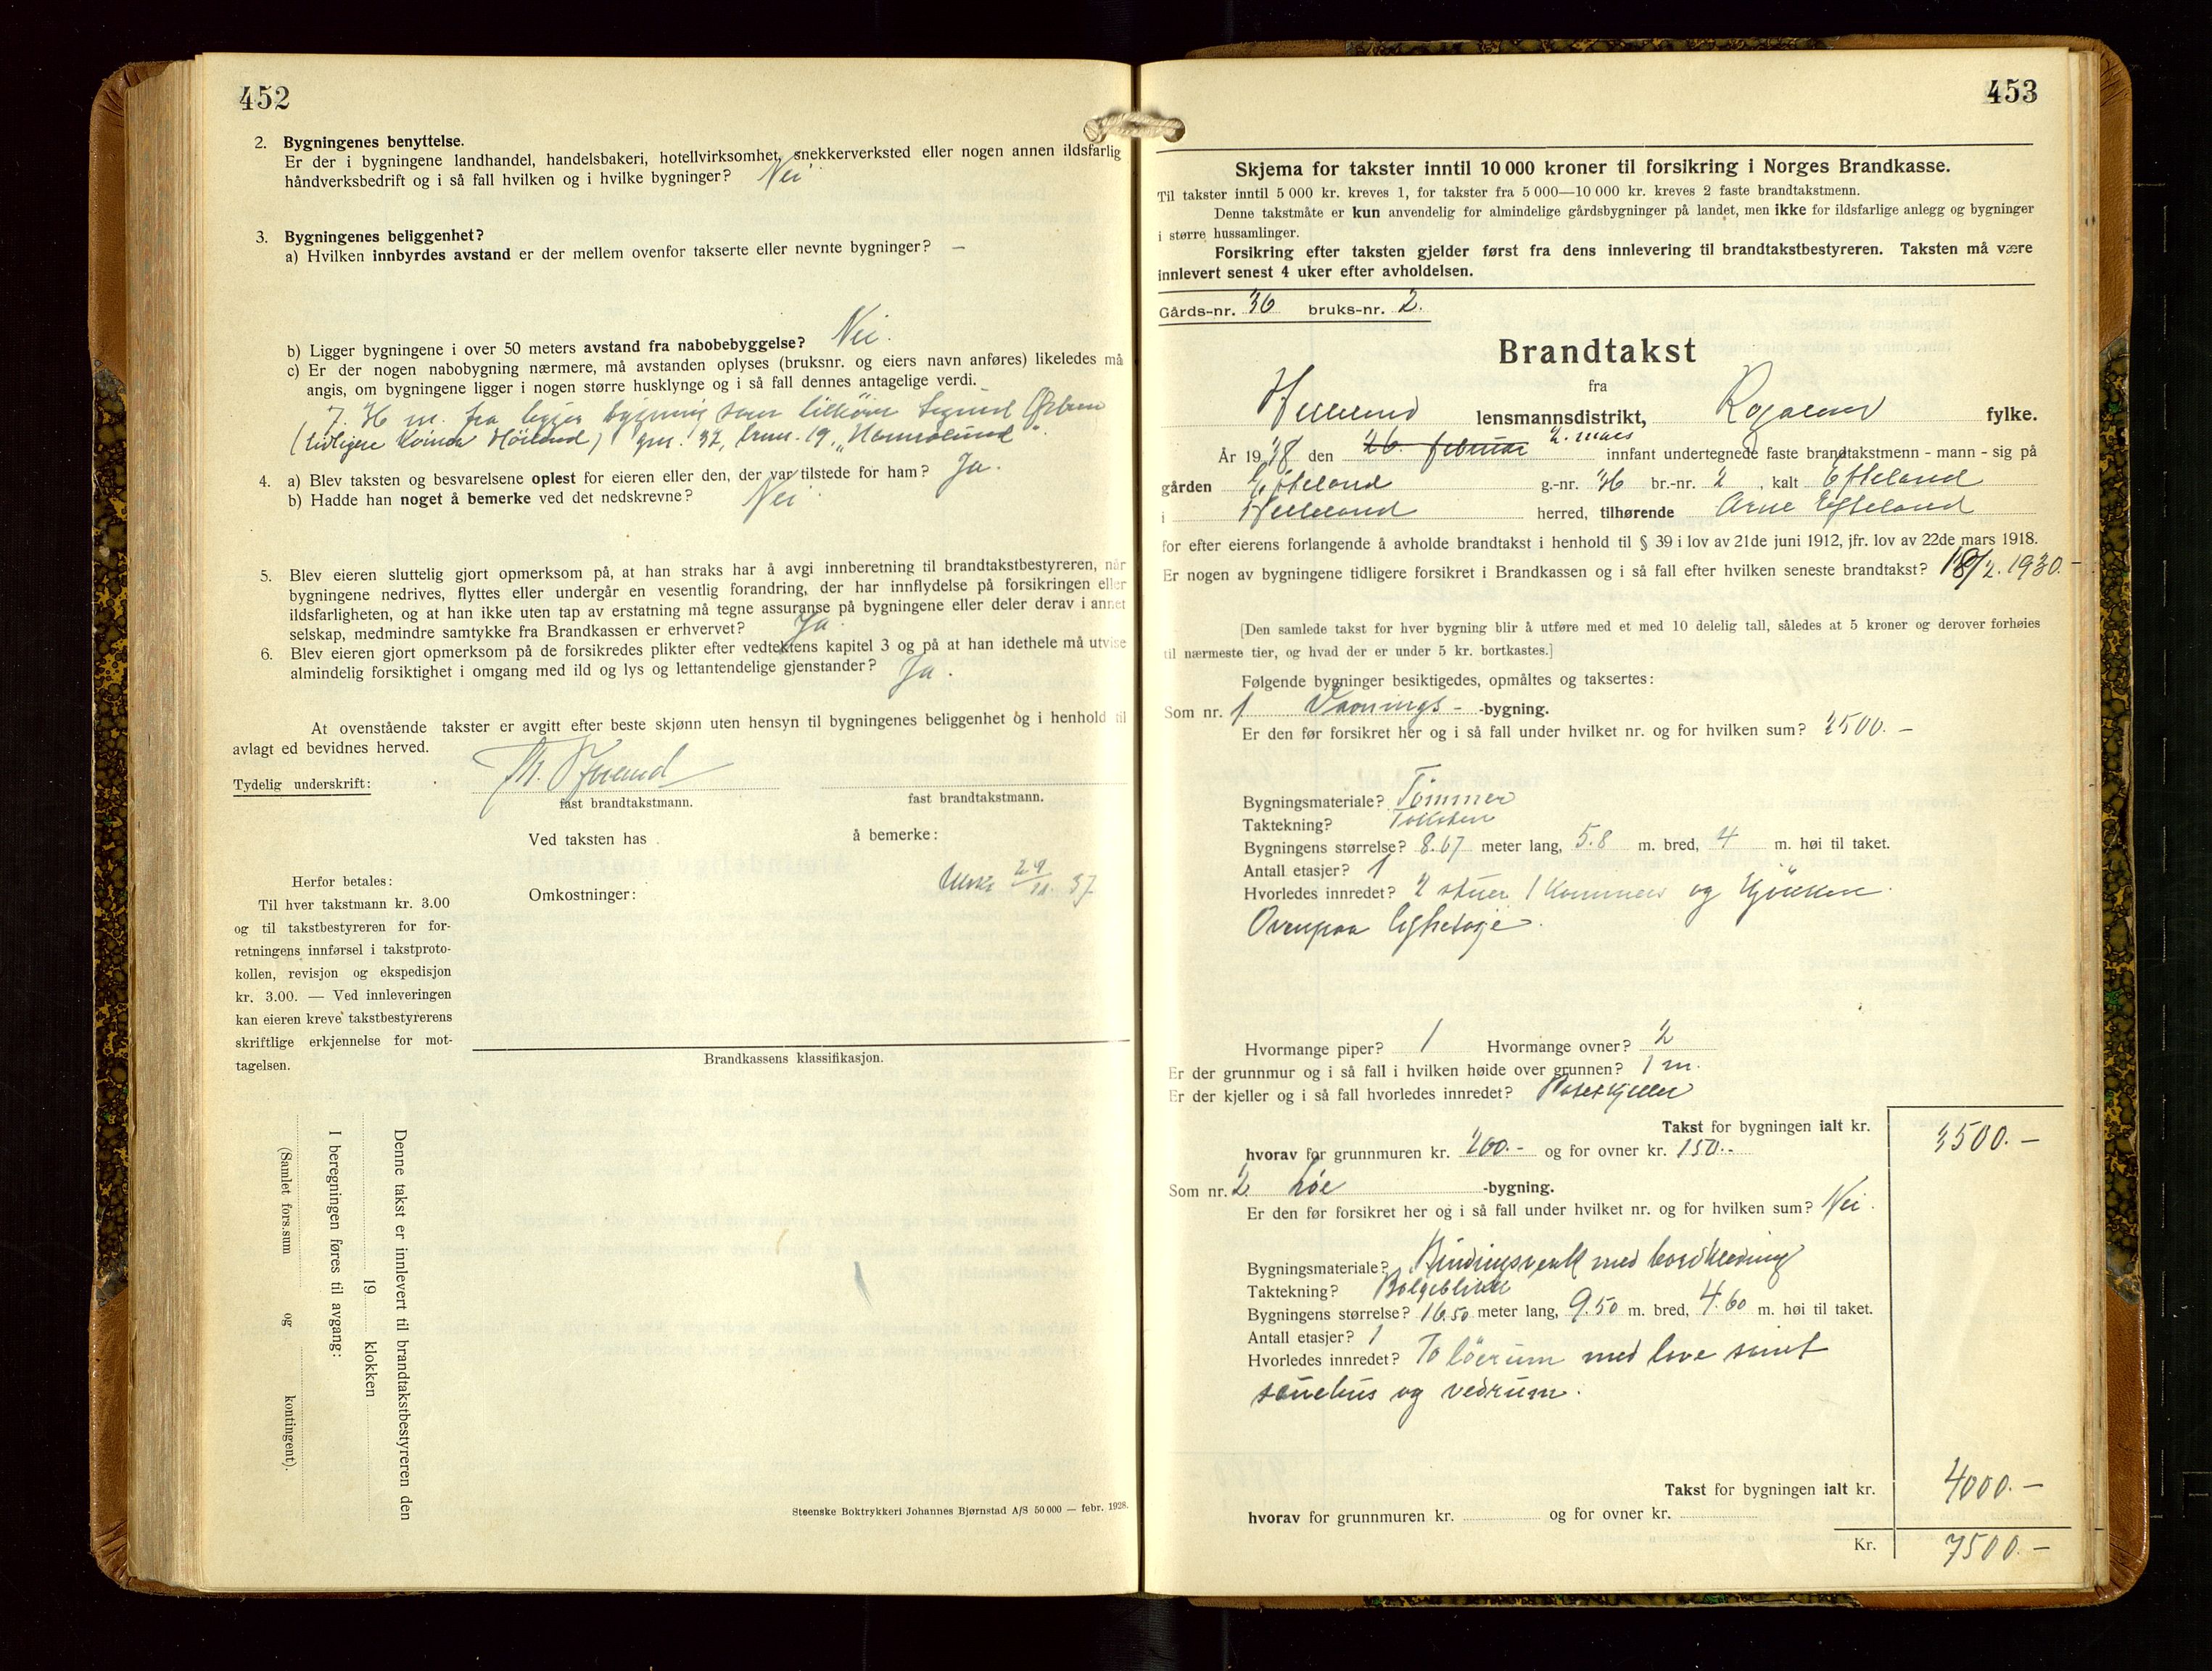 452
2. Bygningenes benyttelse.
Er der i bygningene landhandel, handelsbakeri, hotellvirksomhet, snekkerverksted eller nogen annen ildsfarlig
håndverksbedrift og i så fall hvilken og i hvilke bygninger? Nei
3. Bygningenes beliggenhet?
a) Hvilken innbyrdes avstand er der mellem ovenfor takserte eller nevnte bygninger? —
b) Ligger bygningene i over 50 meters avstand fra nabobebyggelse? Nei.
c) Er der nogen nabobygning nærmere, må avstanden oplyses (bruksnr. og eiers navn anføres) likeledes må
angis, om bygningene ligger i nogen større husklynge og i så fall dennes antagelige verdi.
7. 36 m. fra ligger bygning som tilhører Sigurd
(tidligere Høiland) gnr. 37, brnr. 19
4. a) Blev taksten og besvarelsene oplest for eieren eller den, der var tilstede for ham? Ja.
b) Hadde han noget å bemerke ved det nedskrevne? Nei
5. Blev eieren sluttelig gjort opmerksom på, at han straks har å avgi innberetning til brandtakstbestyreren, når
bygningene nedrives, flyttes eller undergår en vesentlig forandring, der har innflydelse på forsikringen eller
ildsfarligheten, og at han ikke uten tap av erstatning må tegne assuranse på bygningene eller deler derav i annet
selskap, medmindre samtykke fra Brandkassen er erhvervet? Ja.
6. Blev eieren gjort opmerksom på de forsikredes plikter efter vedtektens kapitel 3 og på at han idethele må utvise
almindelig forsiktighet i omgang med ild og lys og lettantendelige gjenstander? Ja.
At ovenstående takster er avgitt efter beste skjønn uten hensyn til bygningenes beliggenhet og i henhold til
avlagt ed bevidnes herved.
Tydelig underskrift:
fast brandtakstmann.
fast brandtakstmann.
Ved taksten has å bemerke:
Omkostninger:
37
Herfor betales:
Til hver takstmann kr. 3.00
og til takstbestyreren for for-
retningens innførsel i takstproto-
kollen, revisjon og ekspedisjon
kr. 3.00. — Ved innleveringen
kan eieren kreve takstbestyrerens
skriftlige erkjennelse for mot-
tagelsen.
Brandkassens klassifikasjon.
Denne takst er innlevert til brandtakstbestyreren den
19 klokken
I beregningen føres til avgang:
(Samlet fors.sum og kontingent).
Steenske Boktrykkeri Johannes Bjørnstad A/S 50 000 — febr. 1928.
453
Skjema for takster inntil 10 000 kroner til forsikring i Norges Brandkasse.
Til takster inntil 5 000 kr. kreves 1, for takster fra 5 000—10 000 kr. kreves 2 faste brandtakstmenn.
Denne takstmåte er kun anvendelig for almindelige gårdsbygninger på landet, men ikke for ildsfarlige anlegg og bygninger
i større hussamlinger.
Forsikring efter taksten gjelder først fra dens innlevering til brandtakstbestyreren. Taksten må være
innlevert senest 4 uker efter avholdelsen.
Gårds-nr. 36 bruks-nr. 2.
Brandtakst
fra
Helleland lensmannsdistrikt, Rogaland fylke.
År 1938 den 26. februar 2. mars innfant undertegnede faste brandtakstmenn - mann - sig på
gården Efteland g.-nr. 36 br.-nr. 2, kalt Efteland
i Helleland herred, tilhørende Arne Efteland
for efter eierens forlangende å avholde brandtakst i henhold til § 39 i lov av 21de juni 1912, jfr. lov av 22de mars 1918.
Er nogen av bygningene tidligere forsikret i Brandkassen og i så fall efter hvilken seneste brandtakst? 18/2. 1930.-
[Den samlede takst for hver bygning blir å utføre med et med 10 delelig tall, således at 5 kroner og derover forhøies
til nærmeste tier, og hvad der er under 5 kr. bortkastes.]
Følgende bygninger besiktigedes, opmåltes og taksertes:
Som nr. 1 Vaanings- -bygning.
Er den før forsikret her og i så fall under hvilket nr. og for hvilken sum? 2500.—
Bygningsmateriale? Tømmer
Taktekning? Taksten
Bygningens størrelse? 8.67 meter lang, 5.8 m. bred, 4 m. høi til taket.
Antall etasjer? 1
Hvorledes innredet? 2 stuer 1 kammer og kjøkken.
Ovenpaa
Hvormange piper? 1 Hvormange ovner? 2
Er der grunnmur og i så fall i hvilken høide over grunnen? 1 m.
Er der kjeller og i så fall hvorledes innredet? Potetkjeller
Takst for bygningen ialt kr. 3500.—
hvorav for grunnmuren kr. 200.- og for ovner kr. 150.-
Som nr. 2 Løe -bygning.
Er den før forsikret her og i så fall under hvilket nr. og for hvilken sum? Nei.
Bygningsmateriale? Bindingsverk med bordkledning
Taktekning? Bølgeblikk
Bygningens størrelse? 16.50 meter lang, 9.50 m. bred, 4.60 m. høi til taket.
Antall etasjer? 1
Hvorledes innredet? To løerum med love samt
sauehus og vedrum.
Takst for bygningen ialt kr. 4000.—
hvorav for grunnmuren kr. og for ovner kr.
Kr. 7500.—